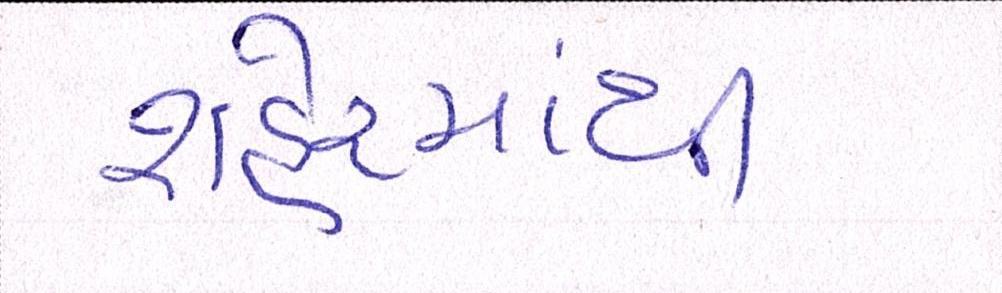 શહેરમાંથી